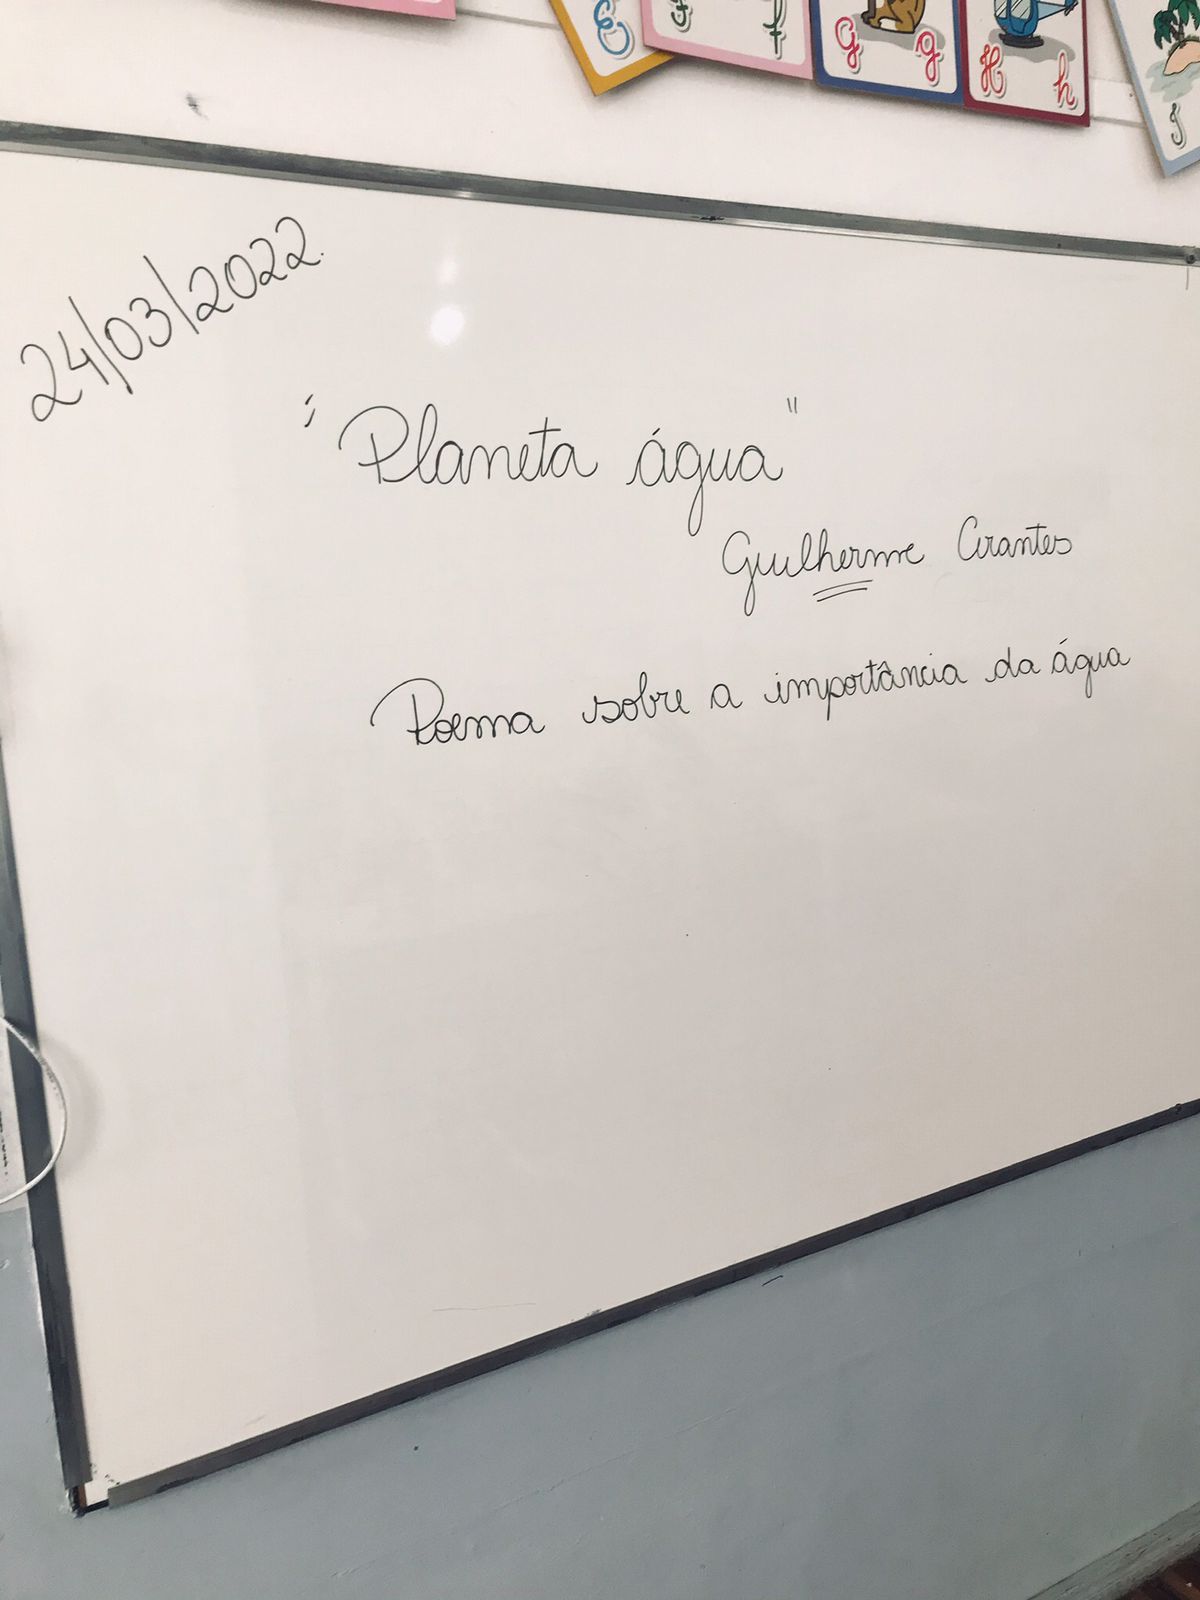 E
F f
G g
H h
24/03/2022.
"Planeta água"
Guilherme Arantes
Poema sobre a importância da água